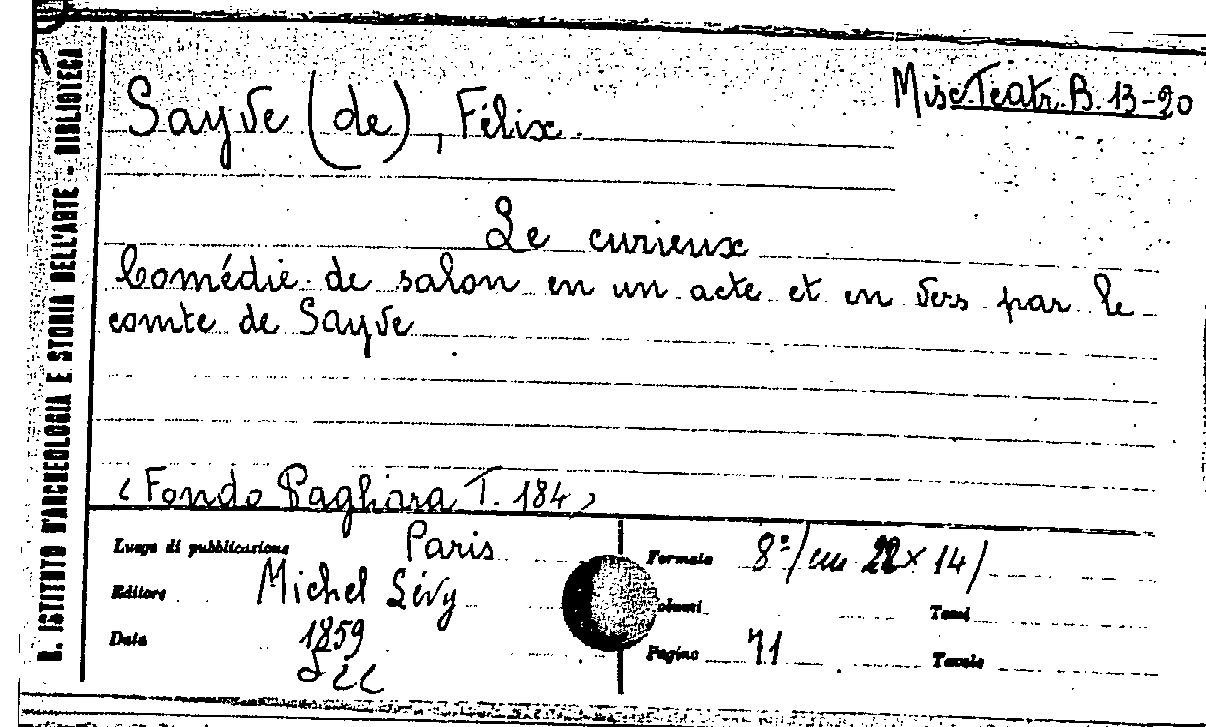 R. ISTITUTO D'ARCHEOLOGIA E STORIA DELL'ARTE - BIBLIOTECA
Sayve (de), Félix.
Misc. Teatr. B. 13-20
Le curieux
Comédie de salon en un acte et en vers par le
comte de Sayve
(Fondo Pagliara T. 184)
Luogo di pubblicazione Paris
Editore Michel Lévy
Data 1859
Formato 8º/cm 22 x 14/
olumi Tomi
Pagine 71 Tavole